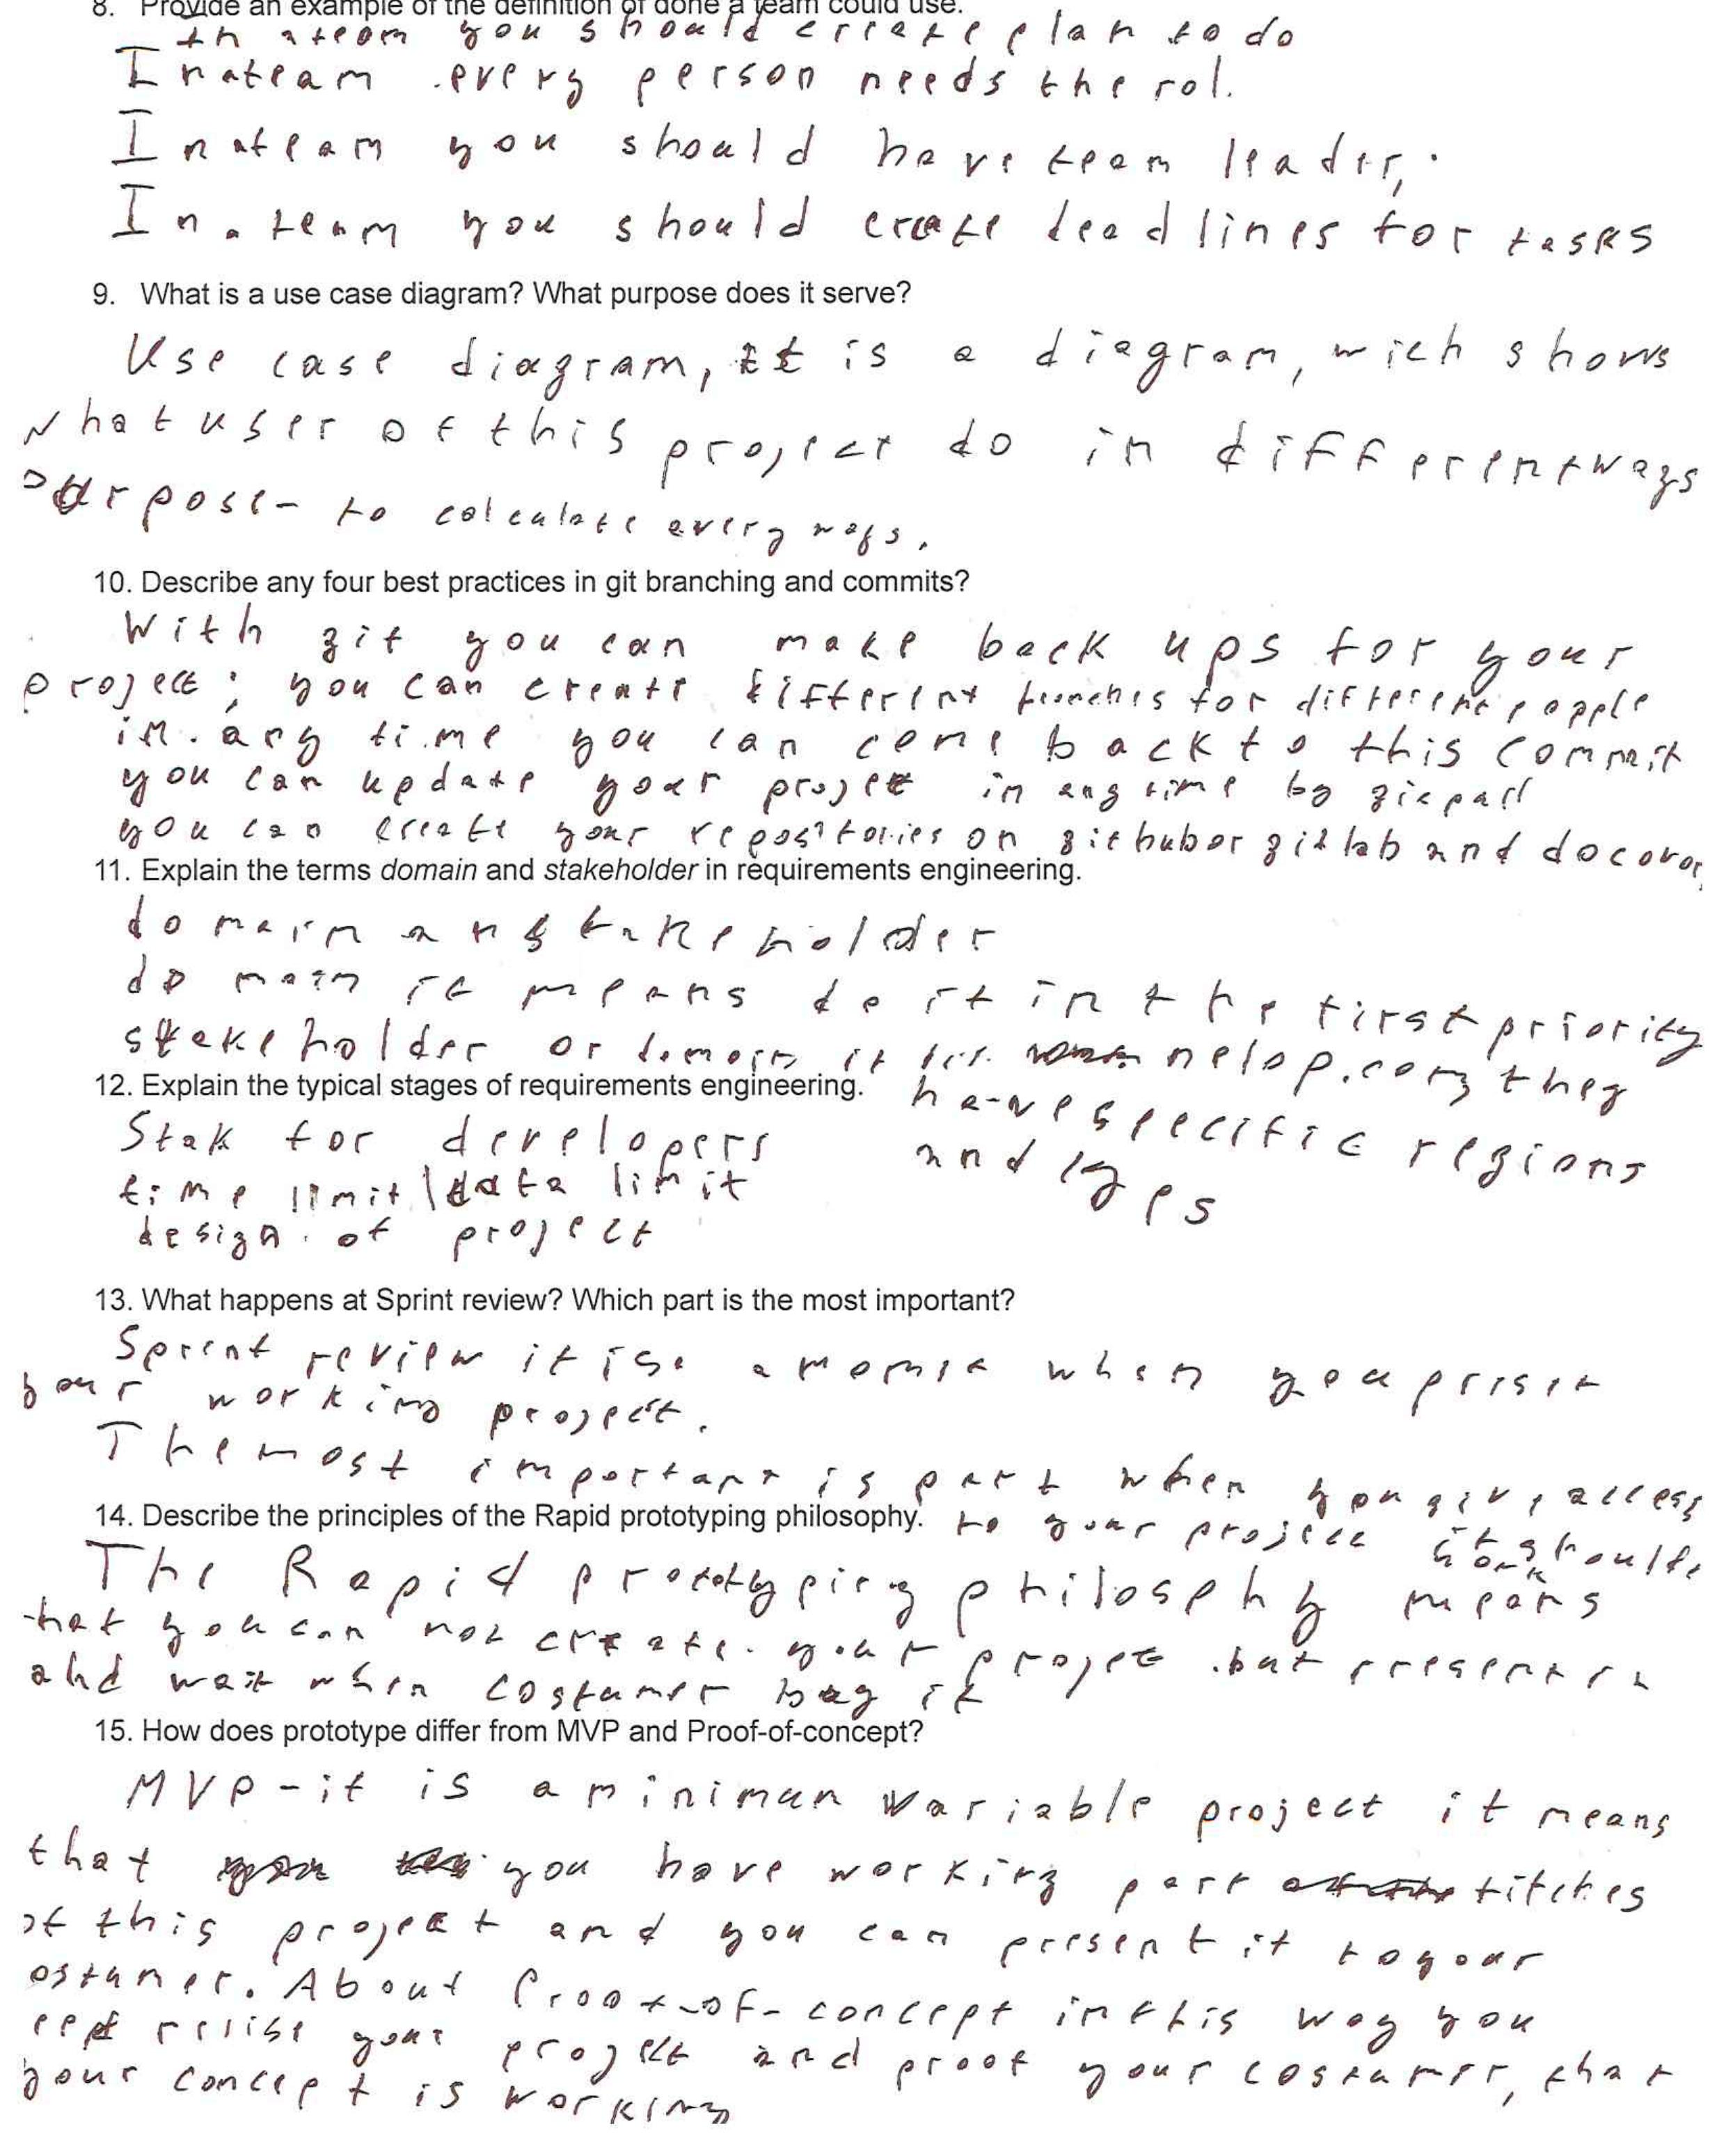 8. Provide an example of the definition of done a team could use.
In a team you should create plan to do
In a team every person needs the rol.
In a team you should have team leader,.
In a team you should create deadlines for tasks
9. What is a use case diagram? What purpose does it serve?
Use case diagram, it is a diagram, wich shows
what user of this project do in different ways
Purpose - to calculate every ways.
10. Describe any four best practices in git branching and commits?
With git you can make back ups for your
project; you can create different branches for different people
in any time you can come back to this commit
you can update your project in any time by git pull
you can create your repositories on github or gitlab and
11. Explain the terms domain and stakeholder in requirements engineering.
domain and stakeholder
domain it means do it in the first priority
stakeholder or domain it nelop.com they
have specific regions
and types
12. Explain the typical stages of requirements engineering.
Stak for developers
time limit \ data limit
design of project
13. What happens at Sprint review? Which part is the most important?
Sprint review it is a moment when you
your working project.
The most important is part when you give access
to your project it should
work
14. Describe the principles of the Rapid prototyping philosophy.
The Rapid prototyping philosphy means
that you can not create your projet but present
and wait when costumer buy it
15. How does prototype differ from MVP and Proof-of-concept?
MVP - it is a minimun variable project it means
that you have working part
of this project and you can present it to your
ostumer. About Proof-of-concept in this way you
relise your project and proof your costumer, that
your concept is working